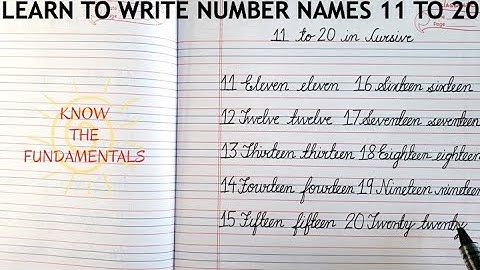 LEARN TO WRITE NUMBER NAMES 11 TO 20
11 to 20 in Cursive
KNOW
THE
FUNDAMENTALS
11 Eleven eleven 16 Sixteen sixteen
12 Twelve twelve 17 Seventeen seventeen
13 Thirteen thirteen 18 Eighteen eighteen
14 Fourteen fourdeen 19 Nineteen nineteen
15 Fifteen fifteen 20 Twenty twenty